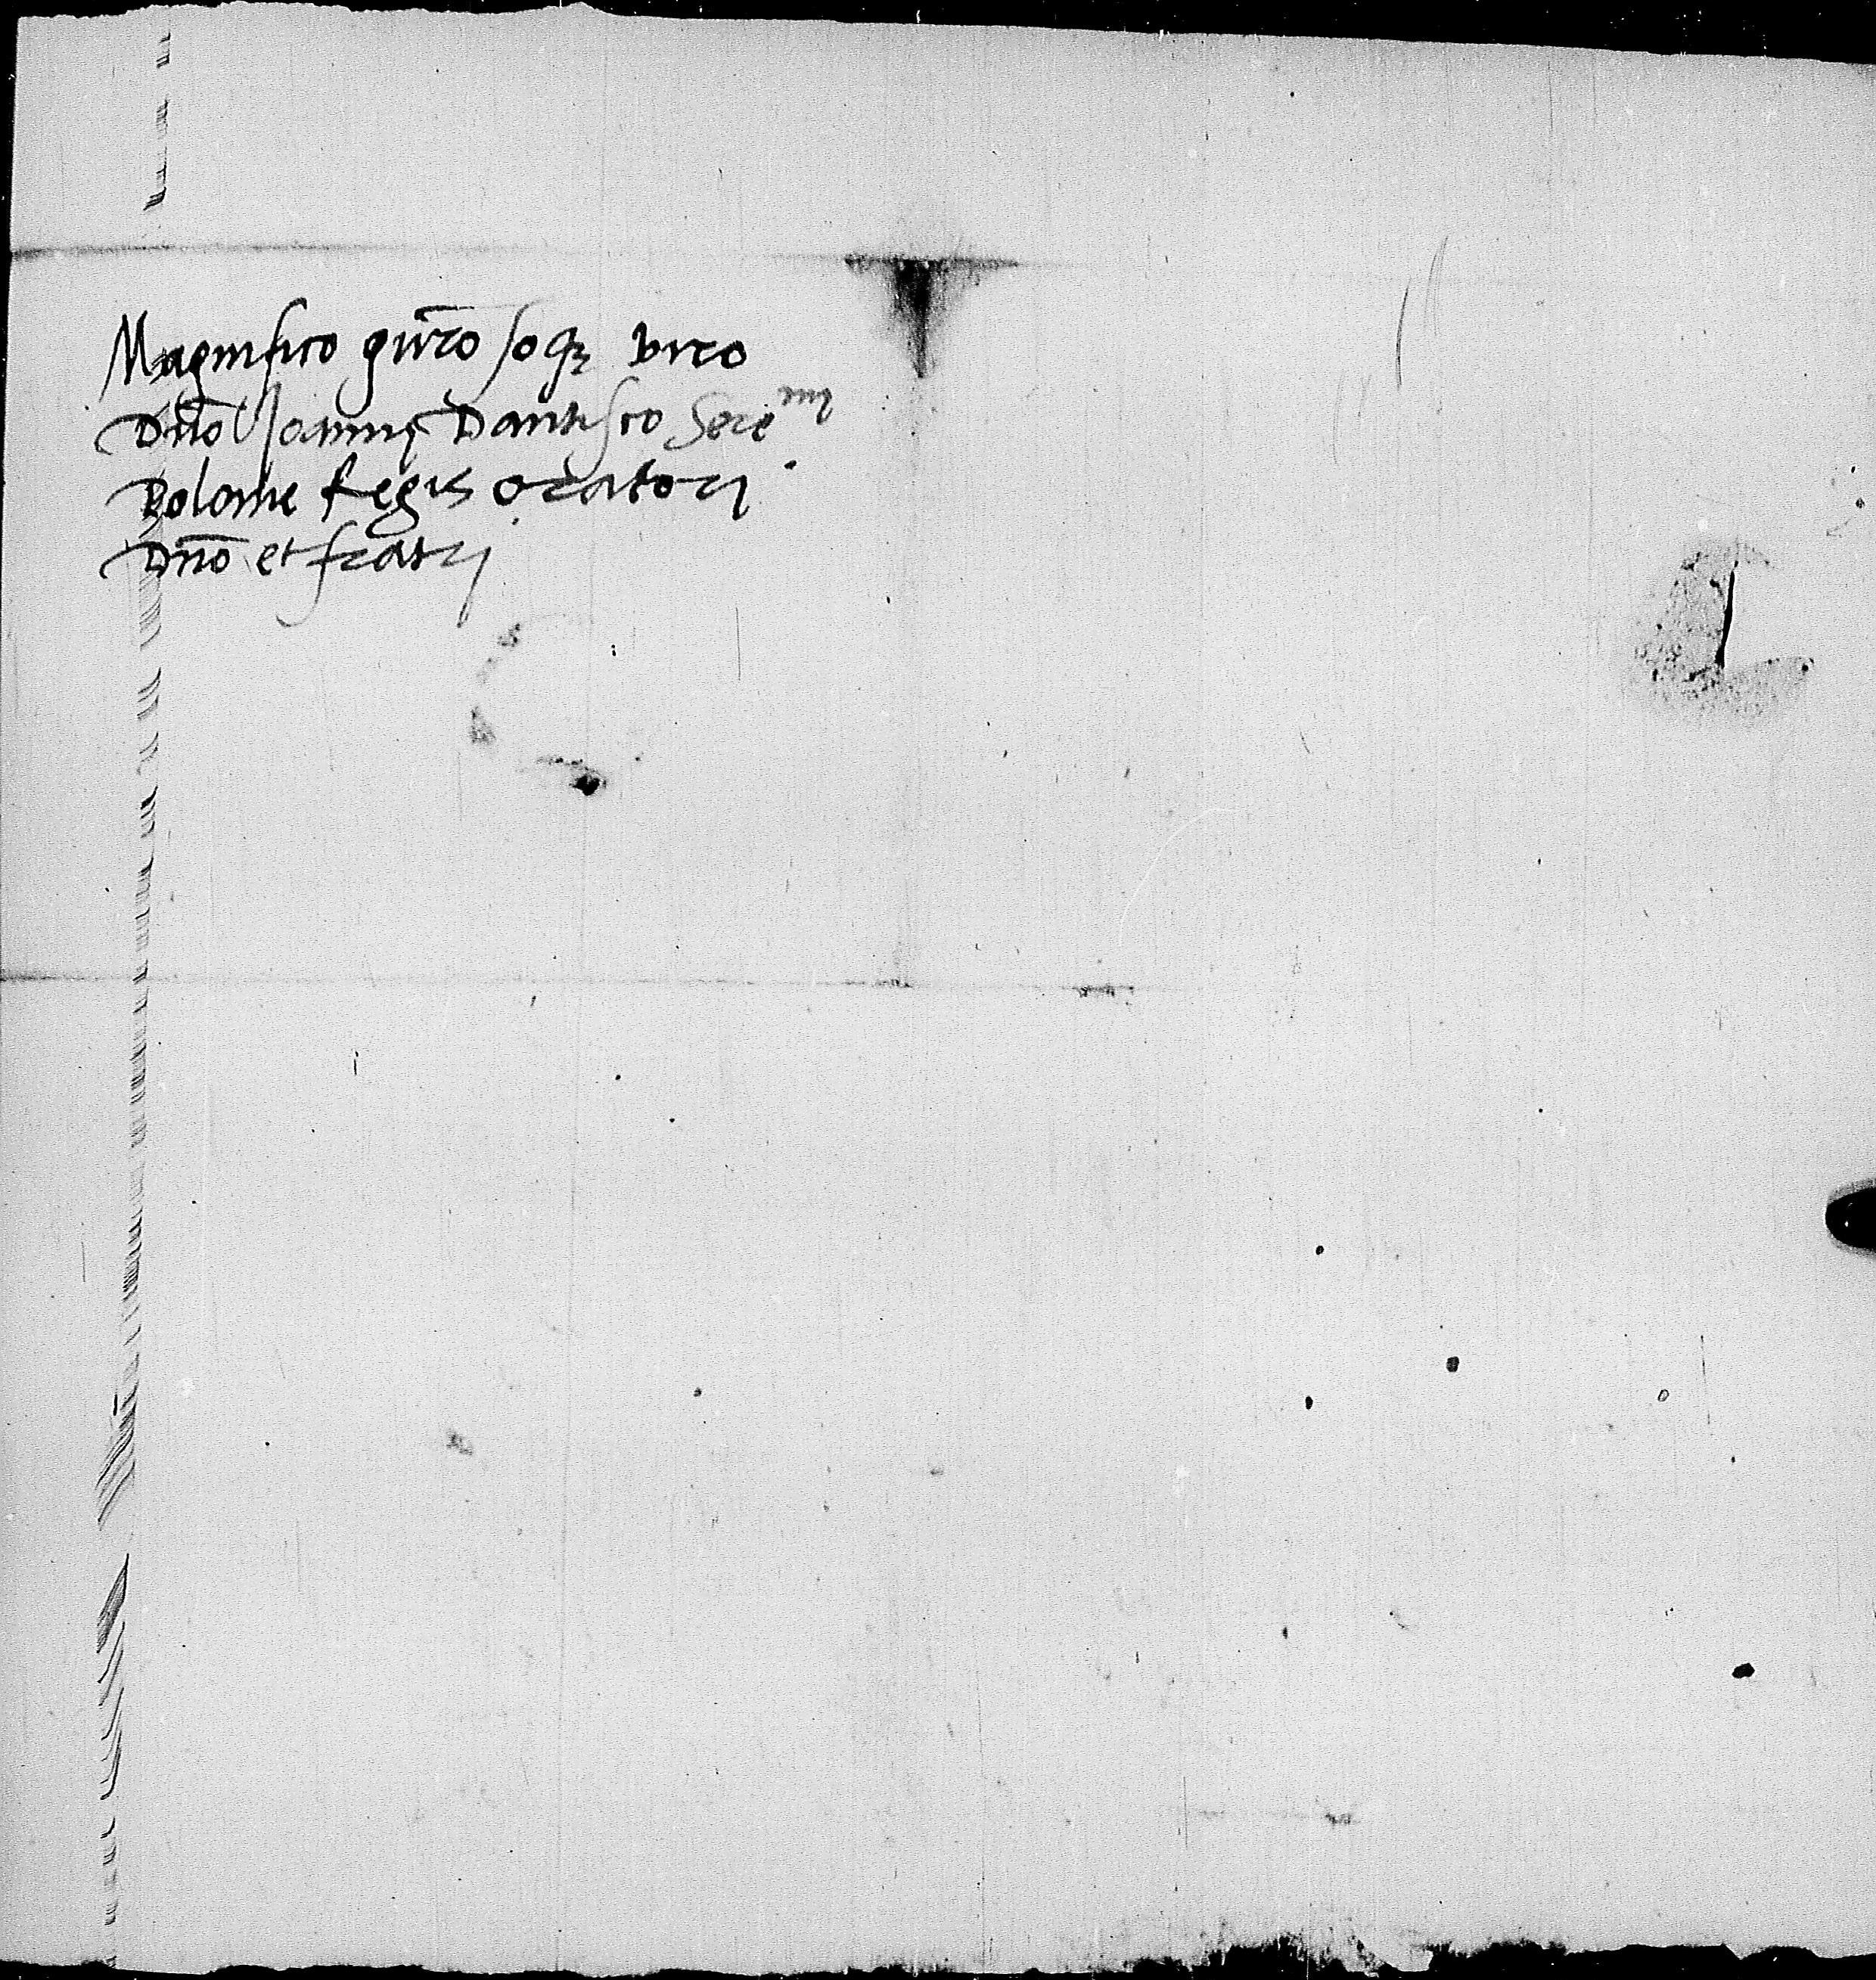 Magnifico gn̄roſoq₃ viro
Dn̄o Joanni Dantiſco Sereᵐⁱ
Polonie Regis oratori
Dn̄o et fratri